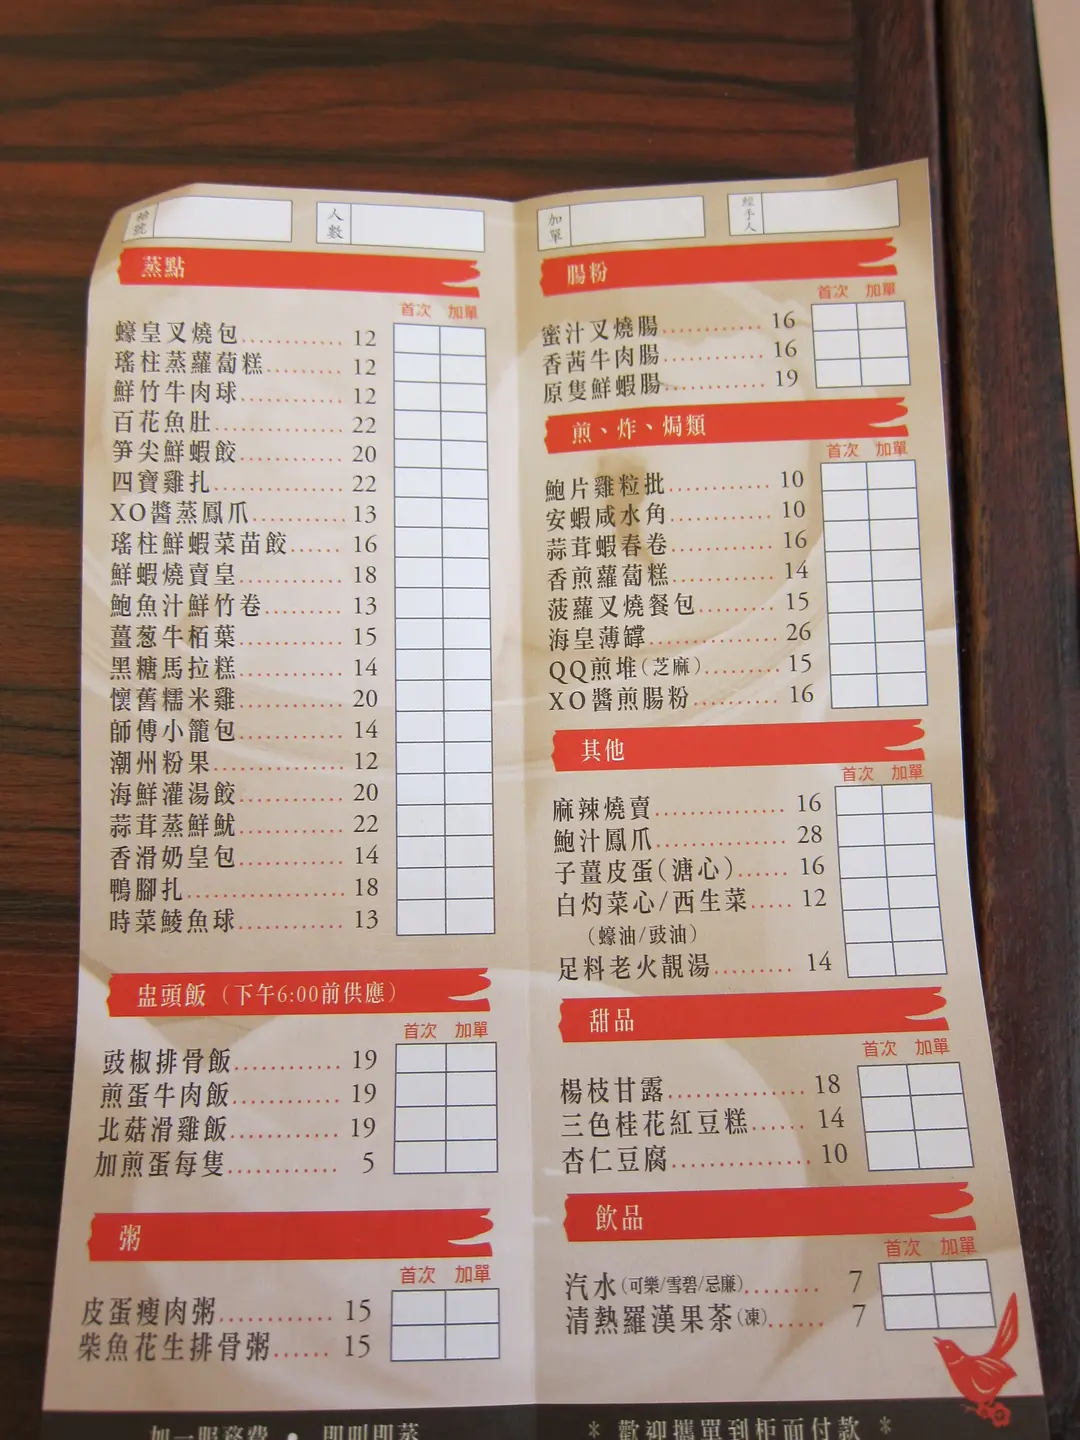 枱號
人數
加單
經手人
蒸點
首次 加單
蠔皇叉燒包............ 12
瑤柱蒸蘿蔔糕.......... 12
鮮竹牛肉球............ 12
百花魚肚............... 22
笋尖鮮蝦餃............ 20
四寶雞扎............... 22
XO醬蒸鳳爪........... 13
瑤柱鮮蝦菜苗餃...... 16
鮮蝦燒賣皇............ 18
鮑魚汁鮮竹卷......... 13
薑葱牛栢葉............ 15
黑糖馬拉糕............ 14
懷舊糯米雞............ 20
師傅小籠包............ 14
潮州粉果............... 12
海鮮灌湯餃............ 20
蒜茸蒸鮮魷............ 22
香滑奶皇包............ 14
鴨腳扎.................. 18
時菜鯪魚球............ 13
盅頭飯（下午6:00前供應）
首次 加單
豉椒排骨飯............ 19
煎蛋牛肉飯............ 19
北菇滑雞飯............ 19
加煎蛋每隻............ 5
粥
首次 加單
皮蛋瘦肉粥............ 15
柴魚花生排骨粥...... 15
腸粉
首次 加單
蜜汁叉燒腸............ 16
香茜牛肉腸............ 16
原隻鮮蝦腸............ 19
煎、炸、焗類
首次 加單
鮑片雞粒批............ 10
安蝦咸水角............ 10
蒜茸蝦春卷............ 16
香煎蘿蔔糕............ 14
菠蘿叉燒餐包......... 15
海皇薄罉............... 26
QQ煎堆(芝麻)......... 15
XO醬煎腸粉........... 16
其他
首次 加單
麻辣燒賣............... 16
鮑汁鳳爪............... 28
子薑皮蛋(溏心)...... 16
白灼菜心/西生菜..... 12
(蠔油/豉油)
足料老火靚湯......... 14
甜品
首次 加單
楊枝甘露............... 18
三色桂花紅豆糕...... 14
杏仁豆腐............... 10
飲品
首次 加單
汽水(可樂/雪碧/忌廉)........ 7
清熱羅漢果茶(凍)...... 7
加一服務費 • 即叫即蒸
* 歡迎攜單到柜面付款 *